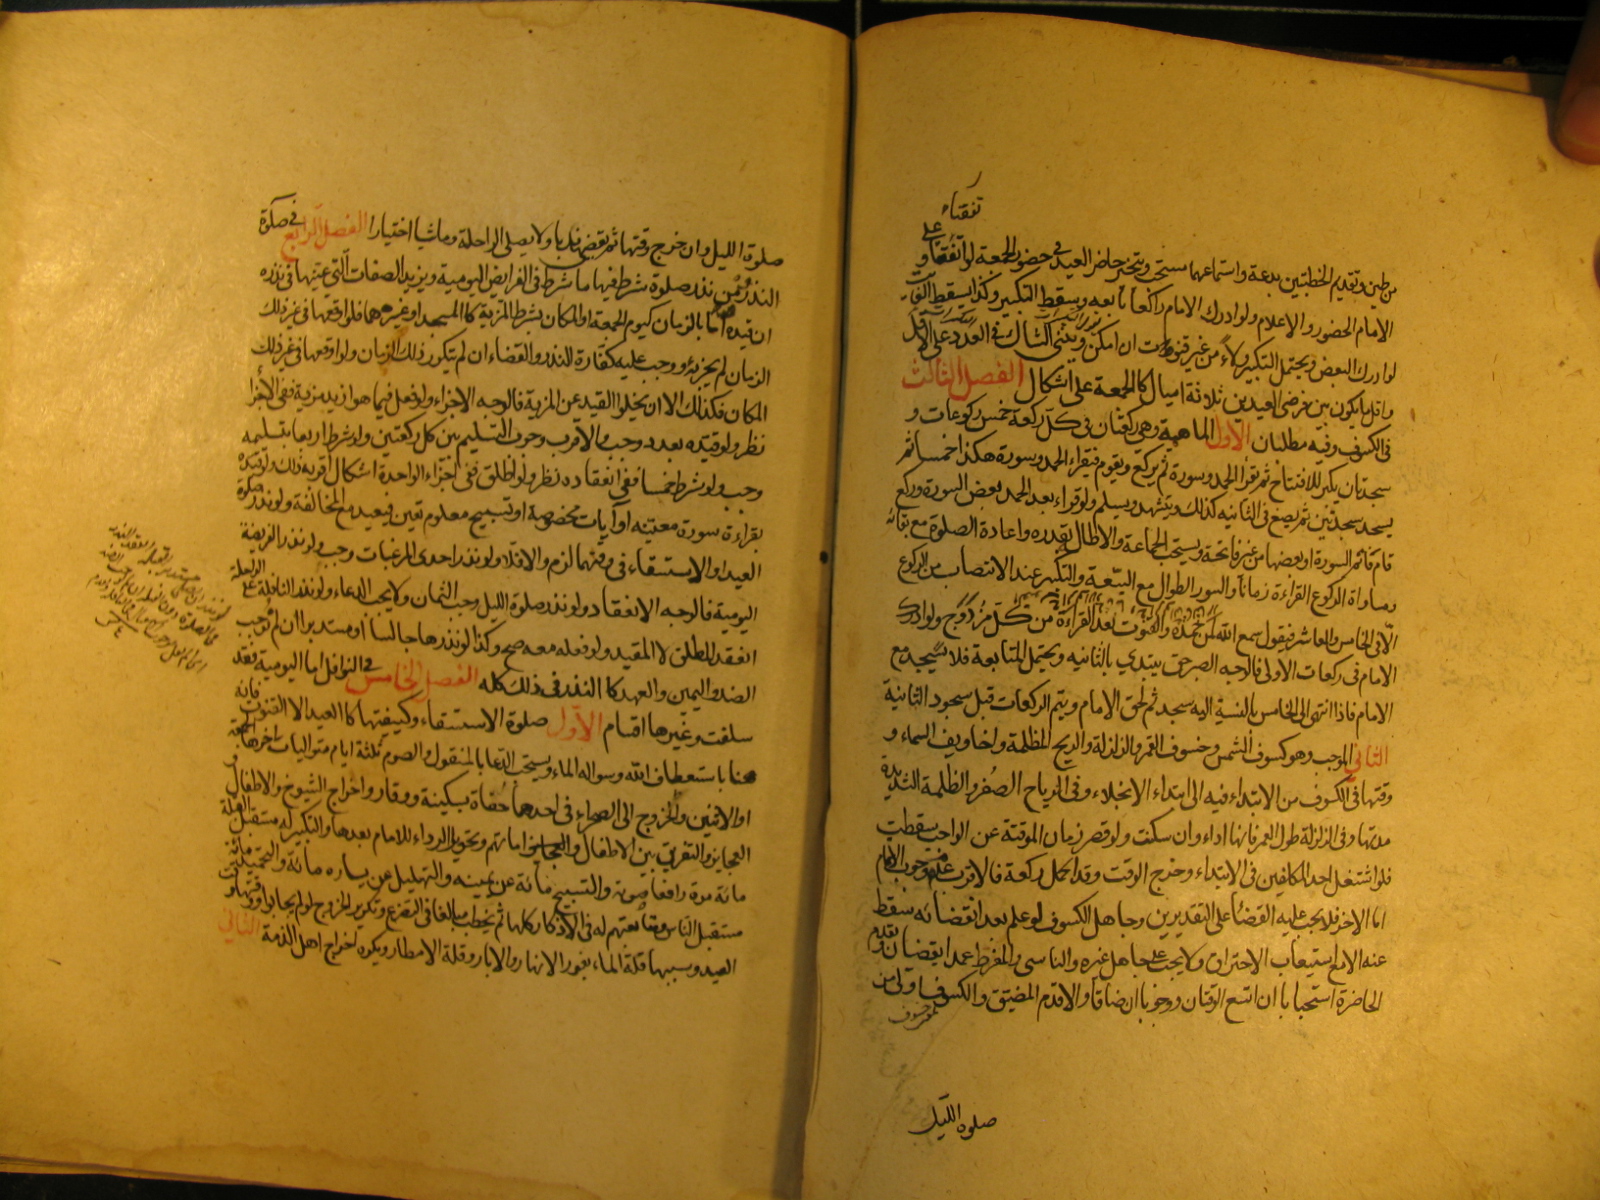 تفقتاء
من طين وتقديم الخطبتين بدعة واستماعهما مستحب ويتخير حاضر العيد في حضور الجمعة لو اتفقتا و على
الامام الحضور والاعلام ولو ادرك الامام راكعا تابعه وسقط التكبير وكذا يسقط الفائت
لو ادرك البعض ويحتمل التكبير ولاء من غير قنوت ان امكن ويبنى الشاك في العدد على الاقل
واقل ما يكون بين فرضي العيدين ثلاثة اميال كالجمعة على اشكال الفصل الثالث
في الكسوف وفيه مطلبان الاول الماهية وهي ركعتان في كل ركعة خمس ركوعات و
سجدتان يكبر للافتتاح ثم يقرا الحمد وسورة ثم يركع ويقوم فيقراء الحمد وسورة هكذا خمسا ثم
يسجد سجدتين ثم يصنع في الثانيه كذلك ويتشهد ويسلم ولو قراء بعد الحمد بعض السورة وركع
قام فاتم السورة او بعضها من غير فاتحة ويستحب الجماعة والاطالة بقدره واعادة الصلوة مع بقائه
ومساواة الركوع القراءة زمانا والسور الطوال مع السعة والتكبير عند الانتصاب من الركوع
الا في الخامس والعاشر فيقول سمع الله لمن حمده والقنوت بعد القراءة من كل مزدوج ولو ادرك
الامام في ركعات الاولى فالوجه الصبر حتى يبتدي بالثانيه ويحتمل المتابعة فلا يسجد مع
الامام فاذا انتهى الى الخامس بالنسبة اليه سجد ثم لحق الامام ويتم الركعات قبل سجود الثانية
الثاني الموجب وهو كسوف الشمس وخسوف القمر والزلزلة والريح المظلمة واخاويف السماء و
وقتها في الكسوف من الابتداء فيه الى ابتداء الانجلاء وفي الرياح الصفر والظلمة الشديدة
مدتها وفي الزلزلة طول العمر فانها اداء وان سكنت ولو قصر زمان الموقتة عن الواجب سقطت
فلو اشتغل احد المكلفين في الابتداء وخرج الوقت وقد اكمل ركعة فالاقرب عدم وجوب الاتمام
اما الاخر فلا يجب عليه القضاء على التقديرين وجاهل الكسوف لو علم بعد انقضائه سقط
عنه الا مع استيعاب الاحتراق ولا يجب على جاهل غيره والناسي والمفرط عمدا يقضيان وتقدم
الحاضرة استحبابا ان اتسع الوقتان ووجوبا ان ضاقا والا قدم المضيق والكسوف اولى من
صلوة الليل
صلوة الليل وان خرج وقتها ثم يقضى ندبا ولا يصلى الراحلة وماشيا اختيارا الفصل الرابع في صلوة
النذر ومن نذر صلوة شرط فيها ما شرط في الفرايض اليومية ويزيد الصفات التي عينها في نذره
ان قيده اما بالزمان كيوم الجمعة او المكان بشرط المزية كالمسجد او غيرهما فلو اوقعها في غير ذلك
الزمان لم يجزئه ووجب عليه كفارة النذر والقضاء ان لم يتكرر ذلك الزمان ولو اوقعها في غير ذلك
المكان فكذلك الا ان يخلوا القيد عن المزية فالوجه الاجزاء ولو فعل فيما هو ازيد مزية ففي الاجزا
نظر ولو قيده بعدد وجب والاقرب وجوب التسليم بين كل ركعتين ولو شرط اربعا بتسليمه
وجب ولو شرط خمسا ففي انعقاده نظر ولو اطلق ففي اجزاء الواحدة اشكال اقربه ذلك ولو قيده
بقراءة سورة معينه او آيات مخصوصة او تسبيح معلوم تعين فيعيد مع المخالفة ولو نذر صلوة
العيد او الاستسقاء في وقتهما لزم والا فلا ولو نذر احدى المرغبات وجب ولو نذر الفريضة
اليومية فالوجه الانعقاد ولو نذر صلوة الليل وجب الثمان ولا يجب الدعاء ولو نذر النافلة على الراحلة
انعقد المطلق لا المقيد ولو فعله معه صح وكذا لو نذرها جالسا او مستدبرا ان لم نوجب
الضد واليمين والعهد كالنذر في ذلك كله الفصل الخامس في النوافل اما اليومية فقد
سلفت وغيرها اقسام الاول صلوة الاستسقاء وكيفيتها كالعيد الا القنوت فانه
هنا باستعطاف الله وسواله الماء ويستحب الدعا بالمنقول والصوم ثلثة ايام متواليات اخرها الجمعة
او الاثنين والخروج الى الصحراء في احدهما حفاة بسكينة ووقار واخراج الشيوخ والاطفال و
العجايز والتفريق بين الاطفال وامهاتهم وتحويل الرداء للامام بعدها والتكبير له مستقبل القبلة
مائة مرة رافعا صوته والتسبيح مائة عن يمينه والتهليل عن يساره مائة والتحميد مائة
مستقبل الناس ومتابعتهم له في الاذكار كلها ثم يخطب مبالغا في التضرع وتكرير الخروج لو لم يجابوا ووقتها وقت
العيد وسببها قلة الماء بغور الانهار والابار وقلة الامطار ويكره اخراج اهل الذمة الثاني